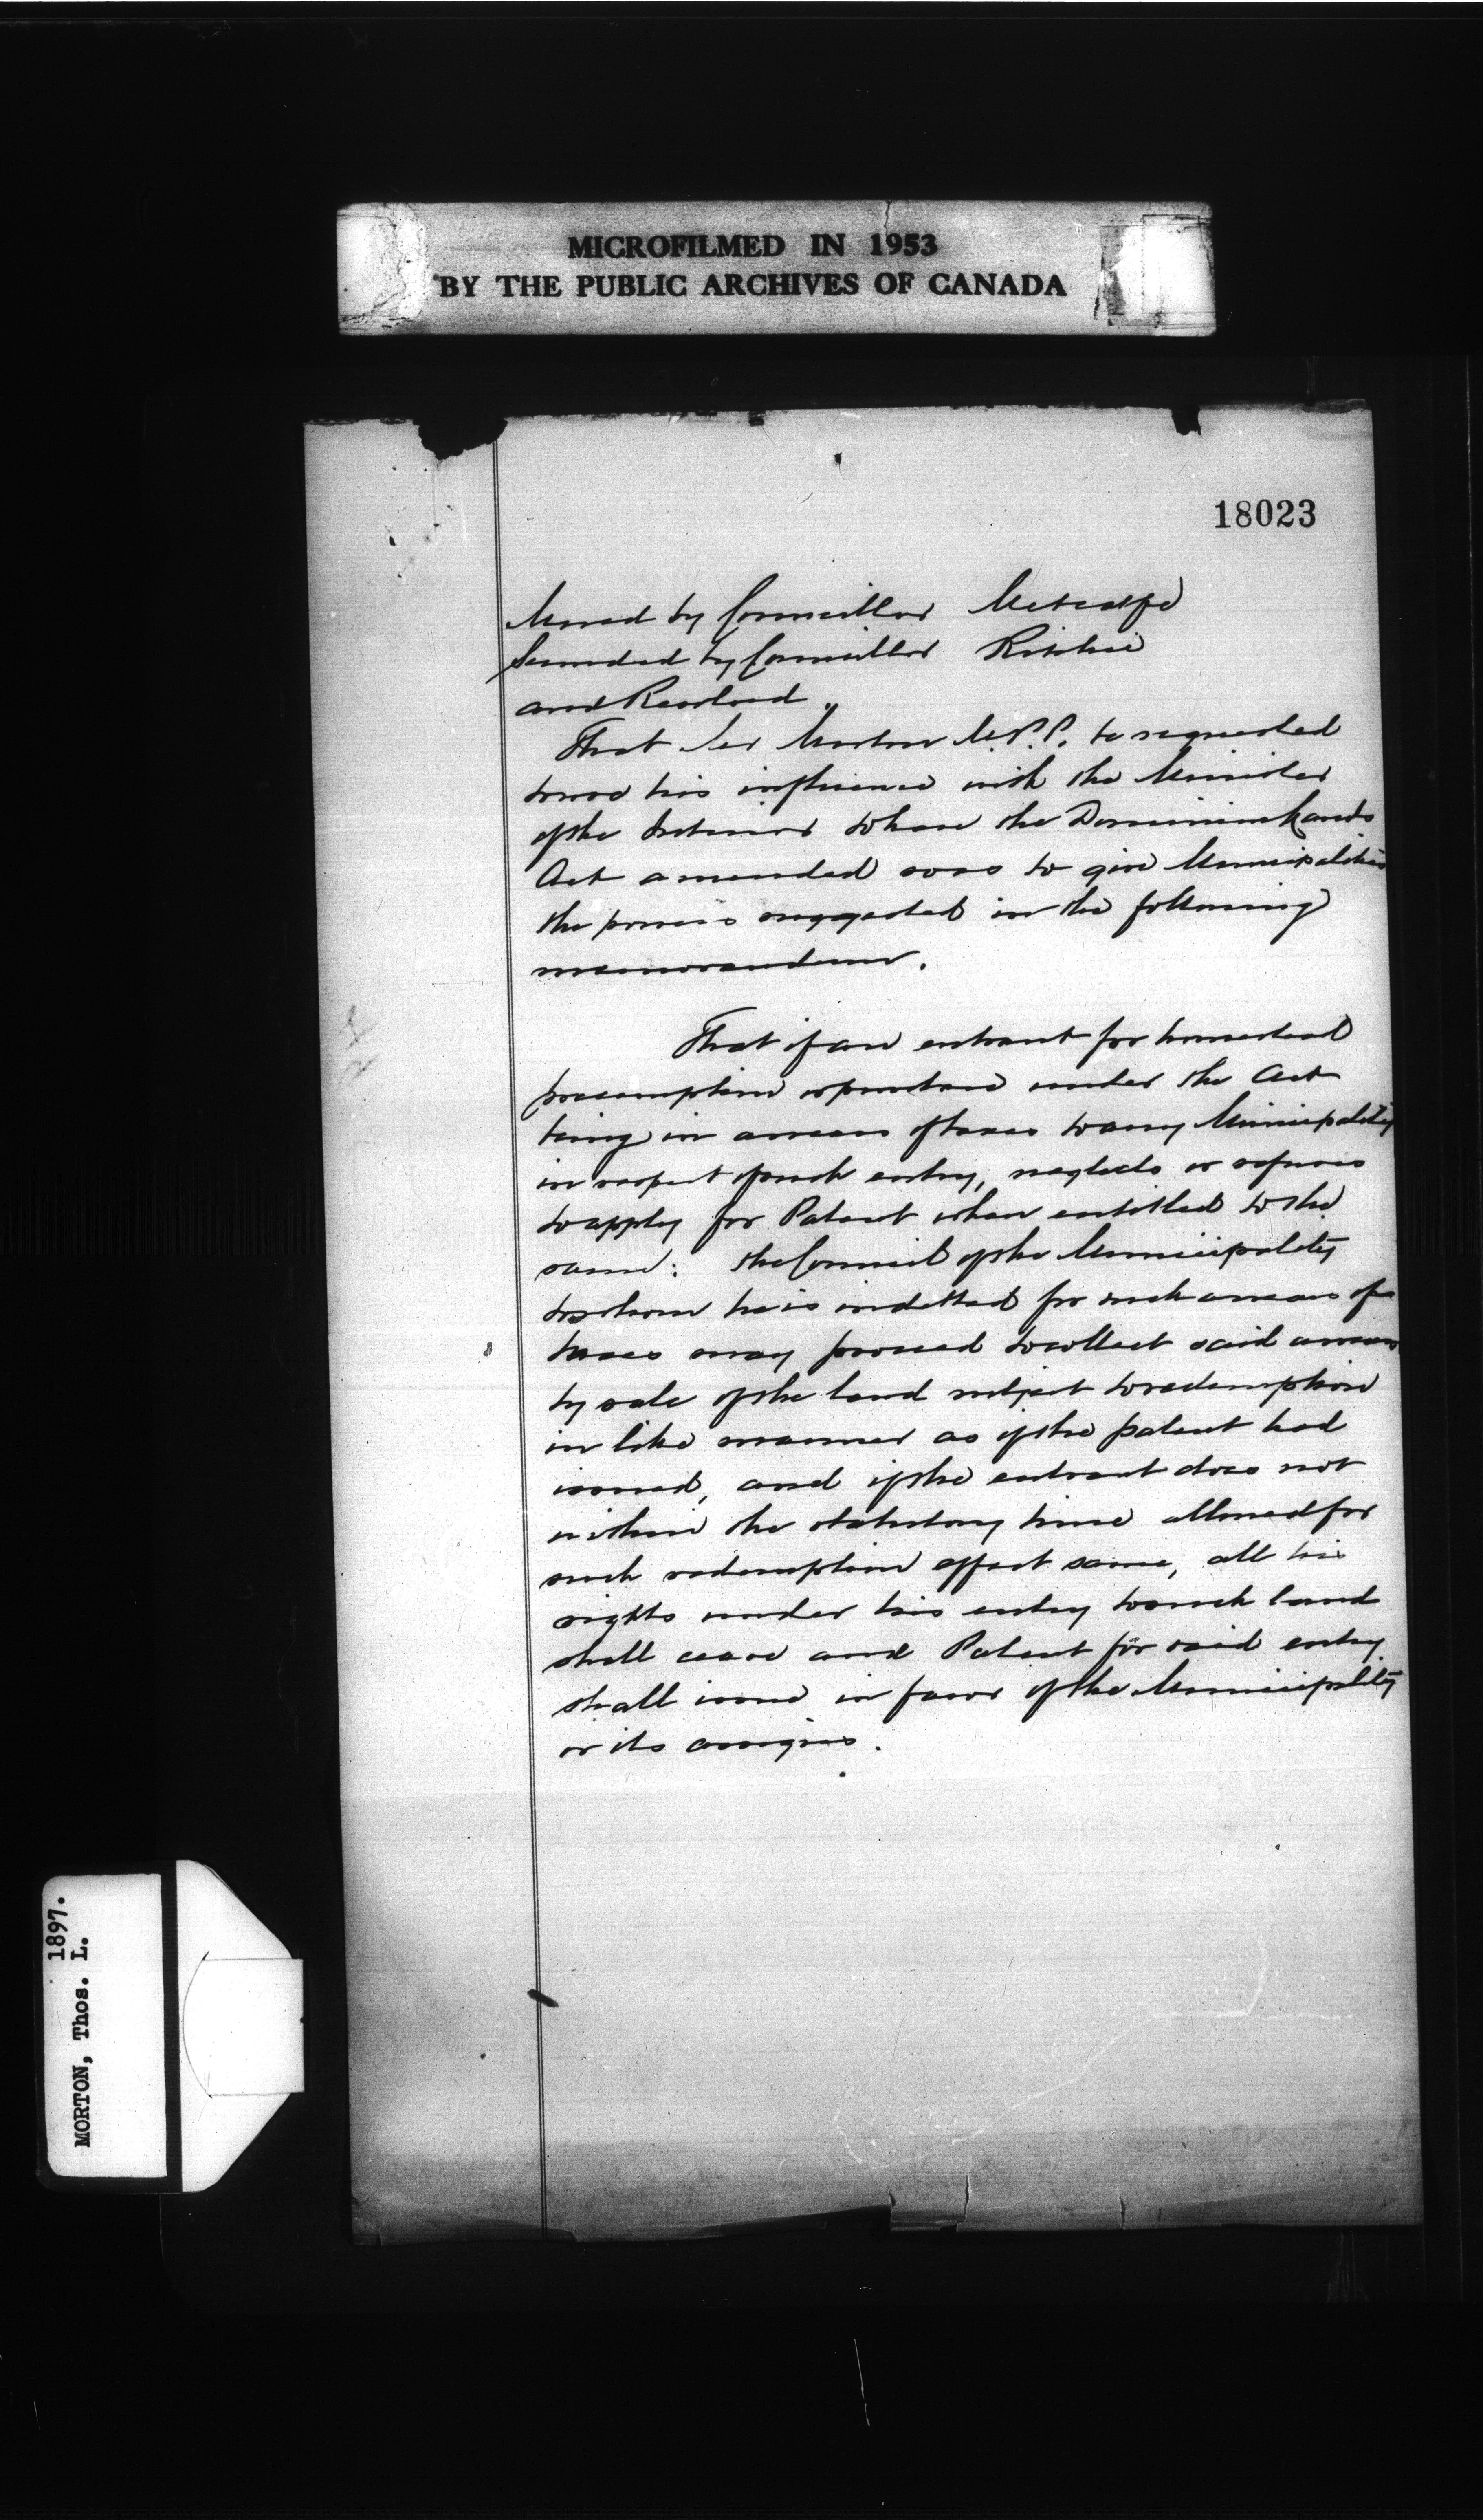 MICROFILMED IN 1953
BY THE PUBLIC ARCHIVES OF CANADA
18023
Moved by Councillor Metcalfe
Seconded by Councillor Ritchie
and Resolved
That Morton M.P.P. be requested
to use his influence with the Minister
of the Interior to have the Dominion Lands
Act amended so as to give Municipalities
the powers suggested in the following
memorandum.
That if an entrant for homestead
preemption or purchase under the Act
being in arrears of taxes to any Municipality
in respect of such entry, neglects or refuses
to apply for Patent when entitled to the
same: the Council of the Municipality
to whom he is indebted for such arrears of
taxes may proceed to collect said arrears
by sale of the land subject to redemption
in like manner as if the patent had
issued, and if the entrant does not
within the statutory time allowed for
such redemption effect same, all his
rights under his entry to such land
shall cease and Patent for said entry
shall issue in favor of the Municipality
or its assigns.
MORTON, Thos. L. 1897.